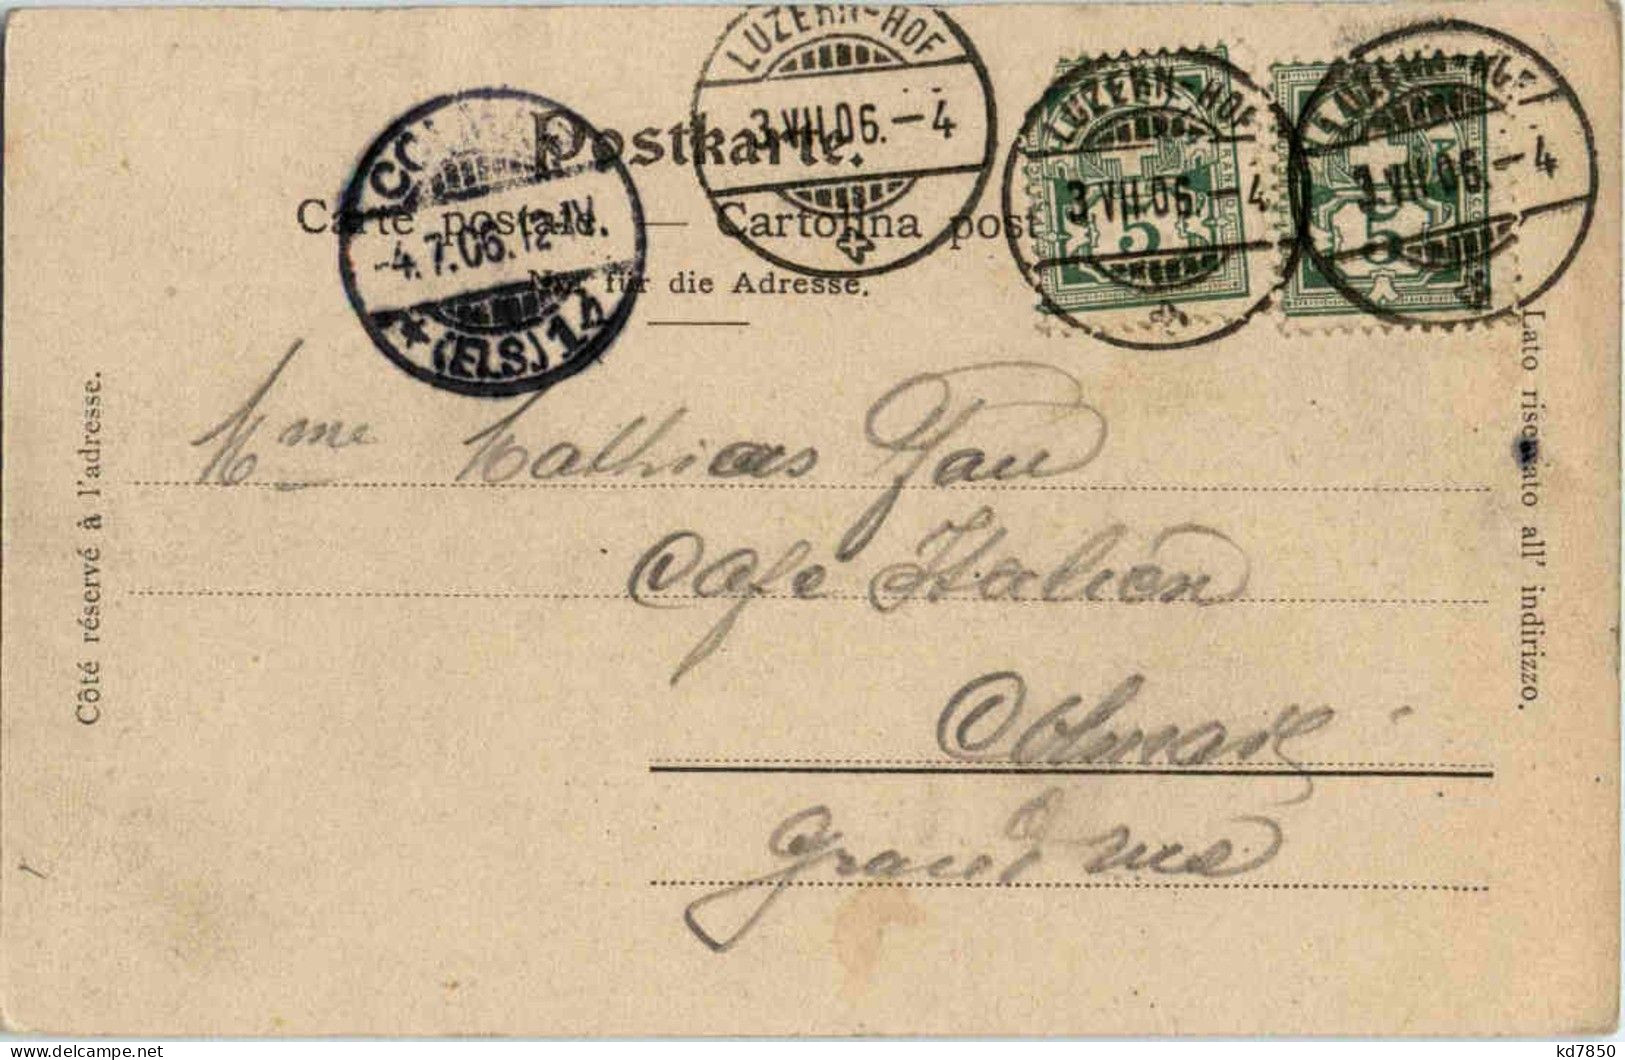 LUZERN-HOF
3.VII.06.-4
LUZERN-HOF
3.VII.06.-4
3.VII.06.-4
5
5
Postkarte.
Carte postale. — Cartolina post
Nur für die Adresse.
-4.7.06.12-1V.
*(ELS.)1A
Côté réservé à l'adresse.
Lato riservato all' indirizzo.
Mme Mathias
Café Italien
Colmar
Grand rue
kd7850